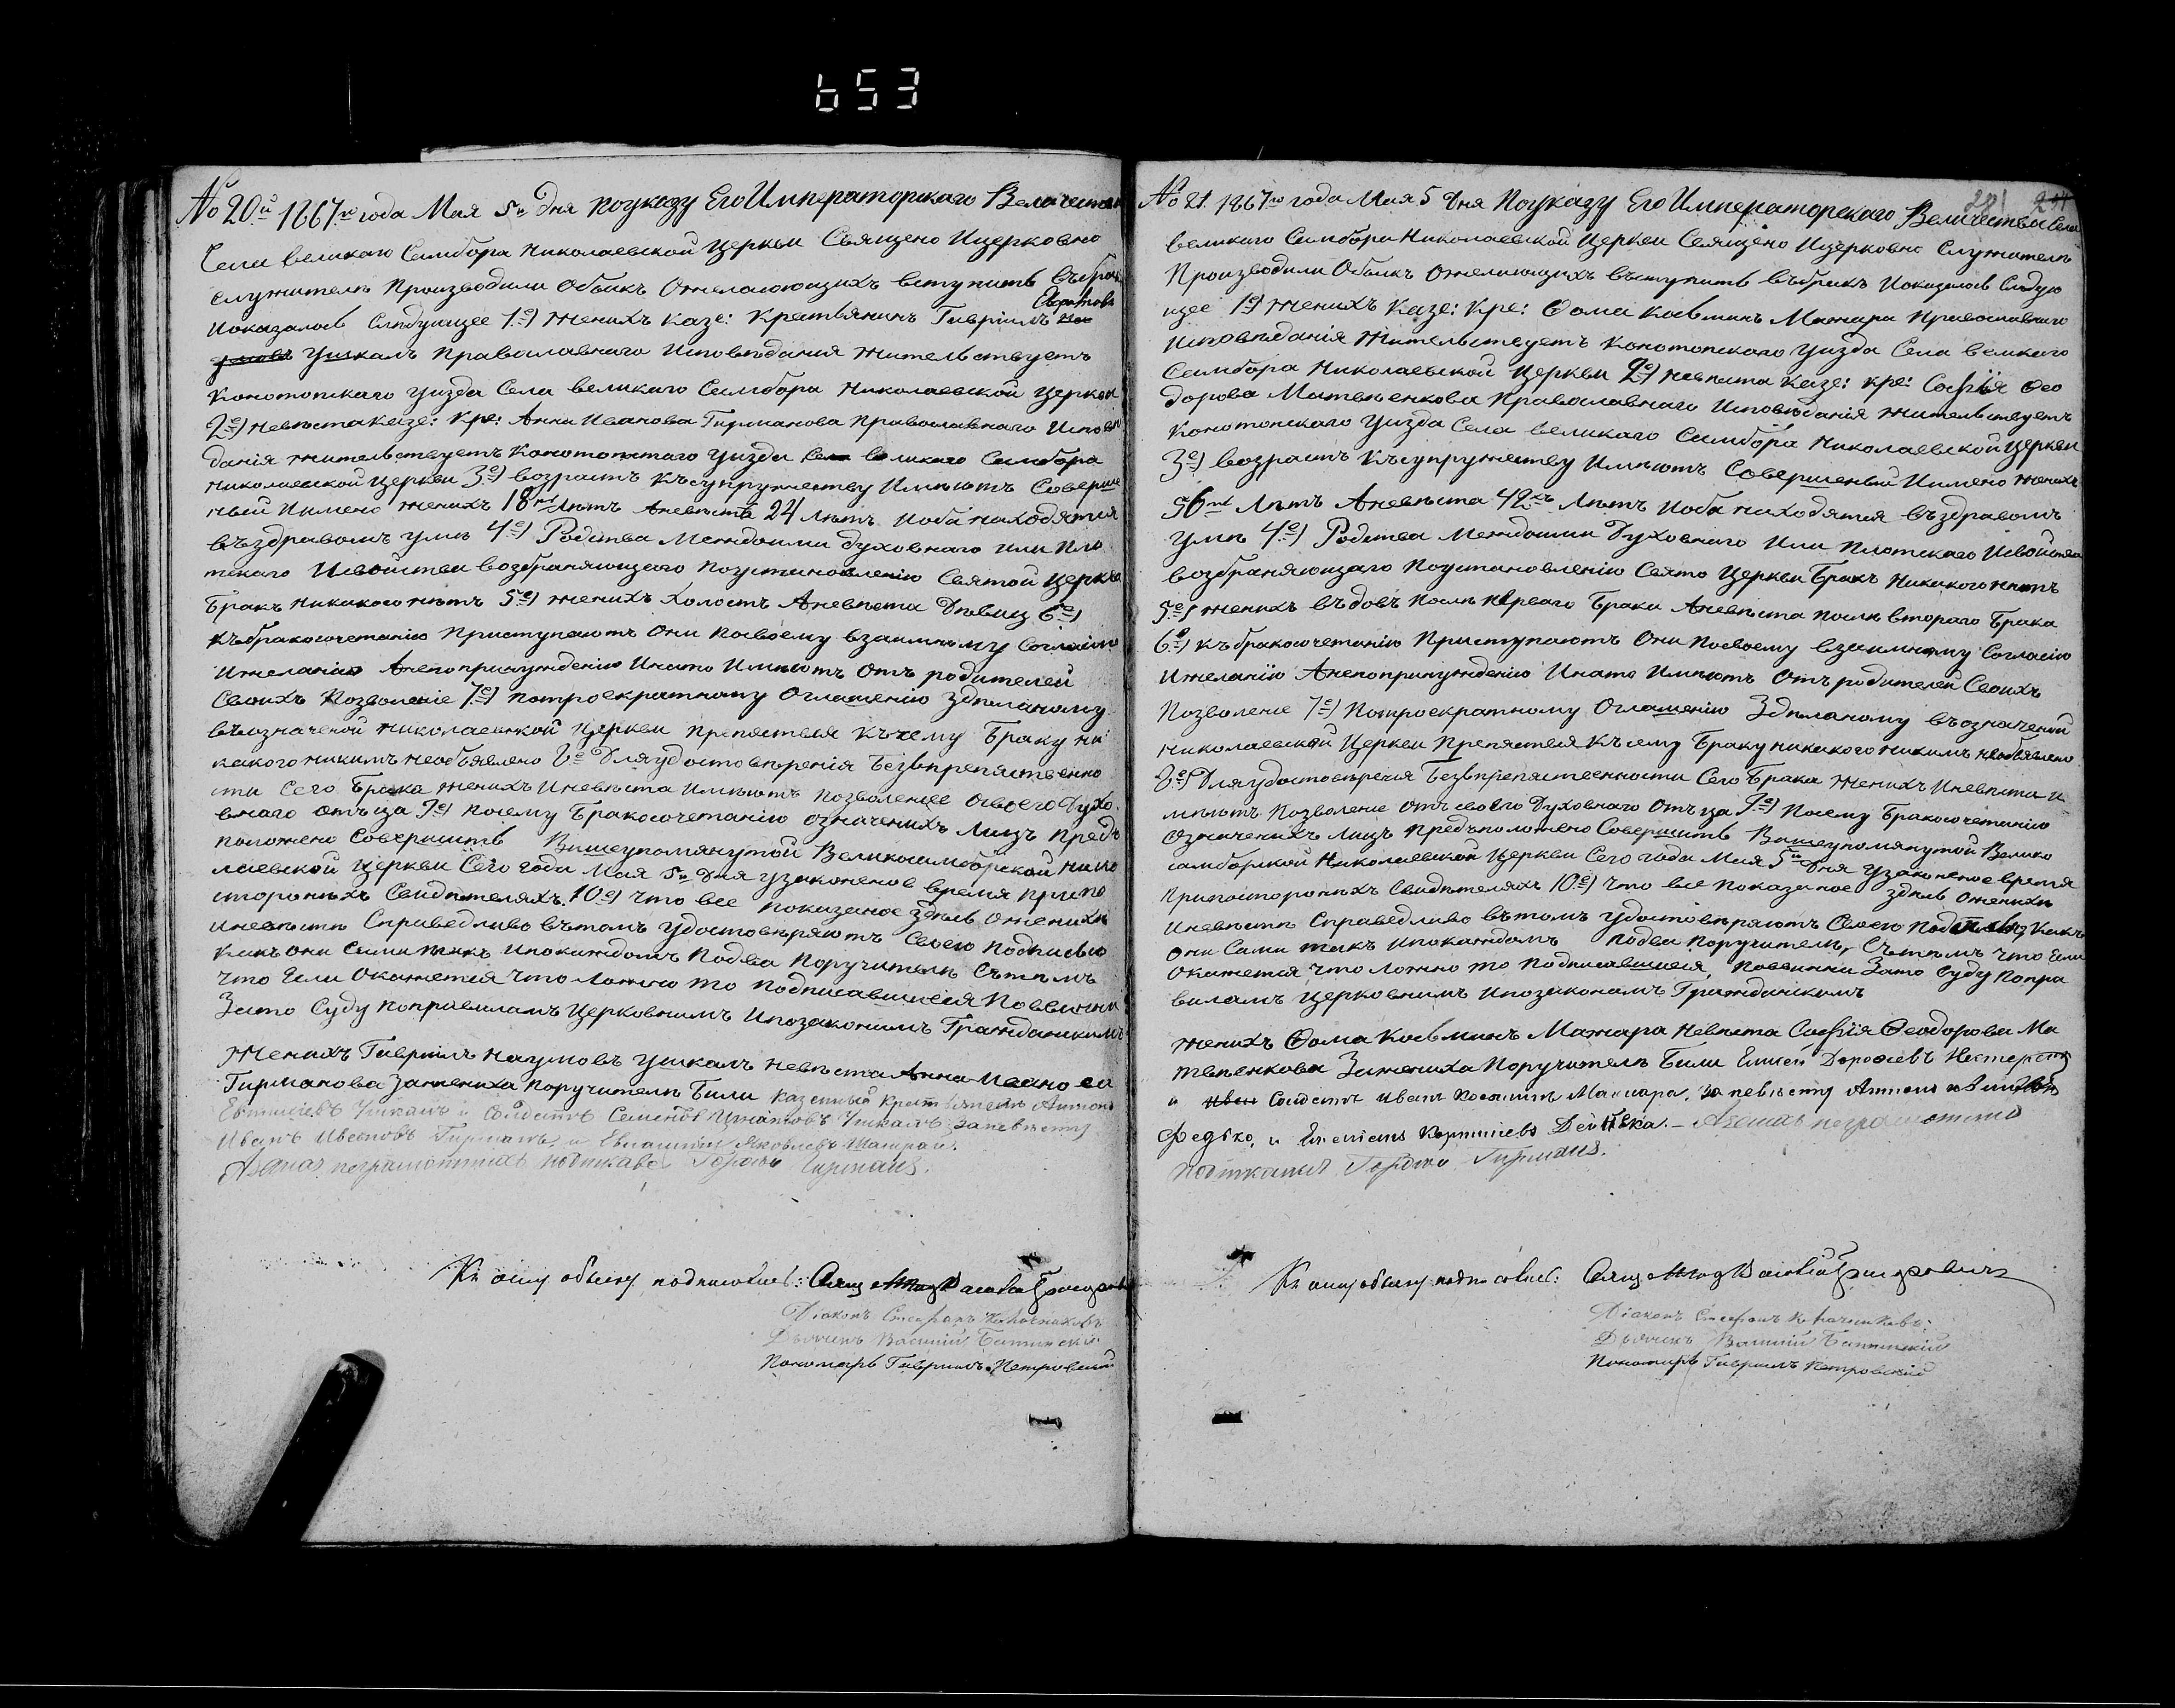 653
№ 20й 1867го года Мая 5го дня поуказу Его Императорскаго Величества
Села великаго Самбора Николаевской Церкви Священо Ицерковно
служители Производили Обыкъ Ожелающихъ вступить въбракъ
Ипоказалось Слѣдующее 1е) женихъ казе: Крестьянинъ Гавріилъ
Ушкалъ православнаго Исповѣданія жительствуетъ
Конотопскаго уизда Села великаго Самбора Николаевской Церкви
2е) невѣста Казе: Кре: Анна Иванова Гирманова Православнаго Исповѣ
данія жительствуетъ Конотопскаго уизда великаго Самбора
Николаевской Церкви 3е) возрастъ Късупружеству Имѣютъ Соверше
ный Имено женихъ 18ть Лѣтъ Аневѣста 24 лѣтъ Иоба находятся
въздравомъ умѣ 4е) Родства Междоими духовнаго или Пло
тскаго Исвойства возбраняющаго Поустановленію Святой Церкви
Бракъ Никакого нѣтъ 5е) женихъ холостъ Аневѣста Дѣвица 6е)
Къбракосочетанію Приступаютъ Они посвоему взаимному Согласію
Ижеланію Анепопринужденію Инато Имѣютъ Отъ родителей
Своихъ Позволеніе 7е) Потроекратному Оглашенію Здѣланому
въозначеной Николаевской Церкви препятствія къчему Браку ни
какого никимъ необъявлено 8е Дляудостовѣренія Безъпрепятственно
сти Сего Брака женихъ Иневѣста Имѣютъ Позволеніе Освоего Духо
внаго Отъца 9е) Посему Бракосочетанію означенихъ Лицъ Предъ
положено Совершить Вишеупомянутой Великосамборской Нико
лаевской Церкви Сего года Мая 5го Дня узаконеное время Припо
сторонихъ Свидѣтеляхъ 10е) что все показаное здѣсь Оженихѣ
Иневѣстѣ Справедливо вътомъ удостовѣряютъ Своею Подписью
Какъ они Сами такъ Ипокаждомъ Подва Поручители Сътѣмъ
что Если Окажется что Ложно то Подписавшиеся Повинни
Зато Суду Поправиламъ Церковнимъ Ипозаконамъ Гражданскимъ
Женихъ Гавріилъ Наумовъ Ушкалъ Невѣста Анна Иванова
Гирманова Зажениха Поручители Били казенные крестьяне Антонъ
Ушкалъ и Солдатъ Семенъ Игнатовъ Ушкалъ Заневѣсту
Иванъ Ивановъ Гирманъ и Яковлевъ
Азанихъ неграмотныхъ подписался Гирманъ.
Къ сему обыску подписались: Свящ
Діаконъ Стефанъ
Дьячекъ Василій
Пономарь Гавріилъ Петровскій
№ 21. 1867го года Мая 5 дня Поуказу Его Императорскаго Величества Села
великаго Самбора Николаевской Церкви Священо Ицерковно Служители
Производили Обыкъ Ожелающихъ вступить въбракъ Ипоказалось Слѣдую
щее 1е) женихъ казе: Кре: Ѳома Косминъ Мажара Православнаго
Исповѣданія жительствуетъ Конотопскаго уизда Села великаго
Самбора Николаевской Церкви 2е) невѣста Казе: кре: Софія Ѳео
дорова Матвѣенкова Православнаго Исповѣданія жительствуетъ
Конотопскаго уизда Села великаго Самбора Николаевской Церкви
3е) возрастъ Късупружеству Имѣютъ Совершеный Имено женихъ
56ть Лѣтъ Аневѣста 42хъ Лѣтъ Иоба находятся въздравомъ
умѣ 4е) Родства Междоими Духовнаго Или Плотскаго Исвойства
возбраняющаго Поустановленію Свято Церкви Бракъ Никакого нѣтъ
5е) женихъ въдовъ Послѣ Перваго Брака Аневѣста послѣ втораго Брака
6е) къбракосочетанію Приступаютъ Они Посвоему взаимному Согласію
Ижеланію Анепопринужденію Инато Имѣютъ Отъ родителей Своихъ
Позволеніе 7е) Потроекратному Оглашенію Здѣланому въозначеной
Николаевской Церкви Препятствія Късему Браку никакого никимъ необъявлено
8е) Дляудостовѣренія Безъпрепятственности Сего Брака женихъ Иневѣста и
мѣютъ Позволеніе Отъсвоего Духовнаго Отъца 9е) Посему Бракосочетанію
Означенихъ Лицъ Предъположено Совершить Вишеупомянутой Велико
самборской Николаевской Церкви Сего года Мая 5го Дня узаконеное время
Припостороннихъ Свидѣтеляхъ 10е) что все показаное здѣсь Оженихѣ
Иневѣстѣ Справедливо вътомъ удостовѣряютъ Своею Подписью Какъ
они Сами такъ Ипокаждомъ Подва Поручители, Сътѣмъ что Если
Окажется что ложно то Подписавшиеся, Повинни Зато Суду Попра
виламъ Церковнимъ Ипозаконамъ Гражданскимъ
женихъ Ѳома Косминъ Мажара Невѣста Софія Ѳеодорова Ма
твѣенкова Зажениха Поручители Били Елисей Дорофеевъ Нестеренко
и Солдатъ Иванъ Мажара, за невѣсту Антонъ
Федько, и Дейнека. – Азанихъ неграмотныхъ
подписался Гирманъ.
Къ сему обыску подписались: Свящ
Діаконъ Стефанъ
Дьячекъ Василій
Пономарь Гавріилъ Петровскій